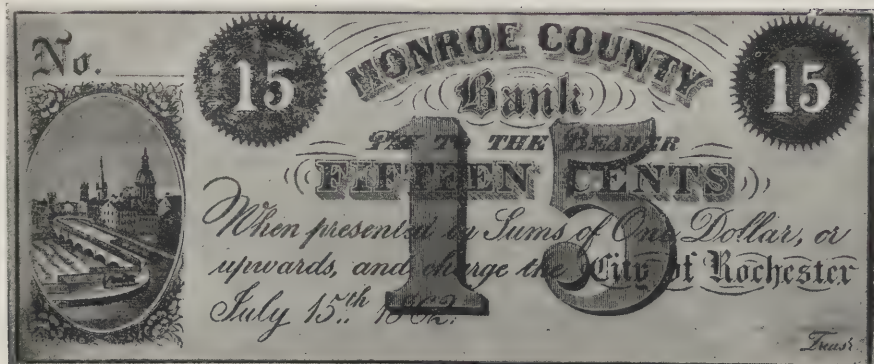 No.
15
MONROE COUNTY
15
Bank
PAY TO THE BEARER
FIFTEEN CENTS
15
When presented in Sums of One Dollar, or
upwards, and charge the City of Rochester
July 15th 1862.
Treasr